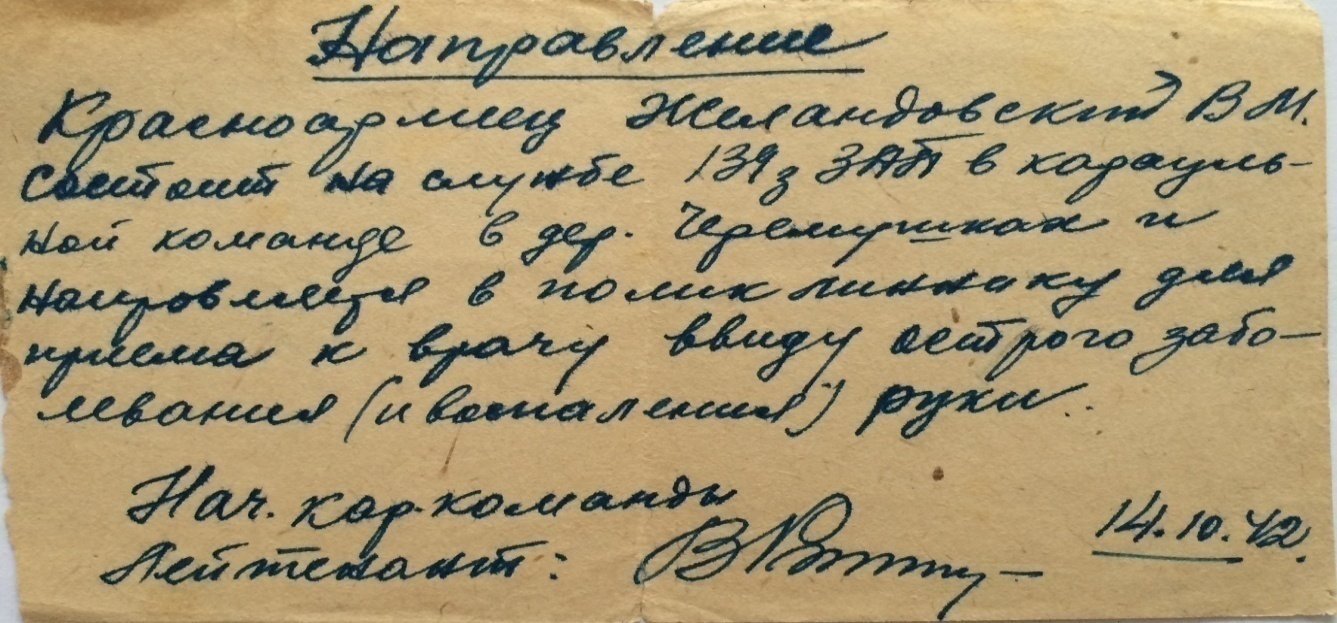 Направление
Красноармеец Желандовский В М.
состоит на службе 139 з ЗАП в карауль-
ной команде в дер. Черемушках и
направляется в поликлиннику для
приема к врачу ввиду острого забо-
левания (и воспаления) руки.
Нач. кар. команды
Лейтенант:
14.10.42.